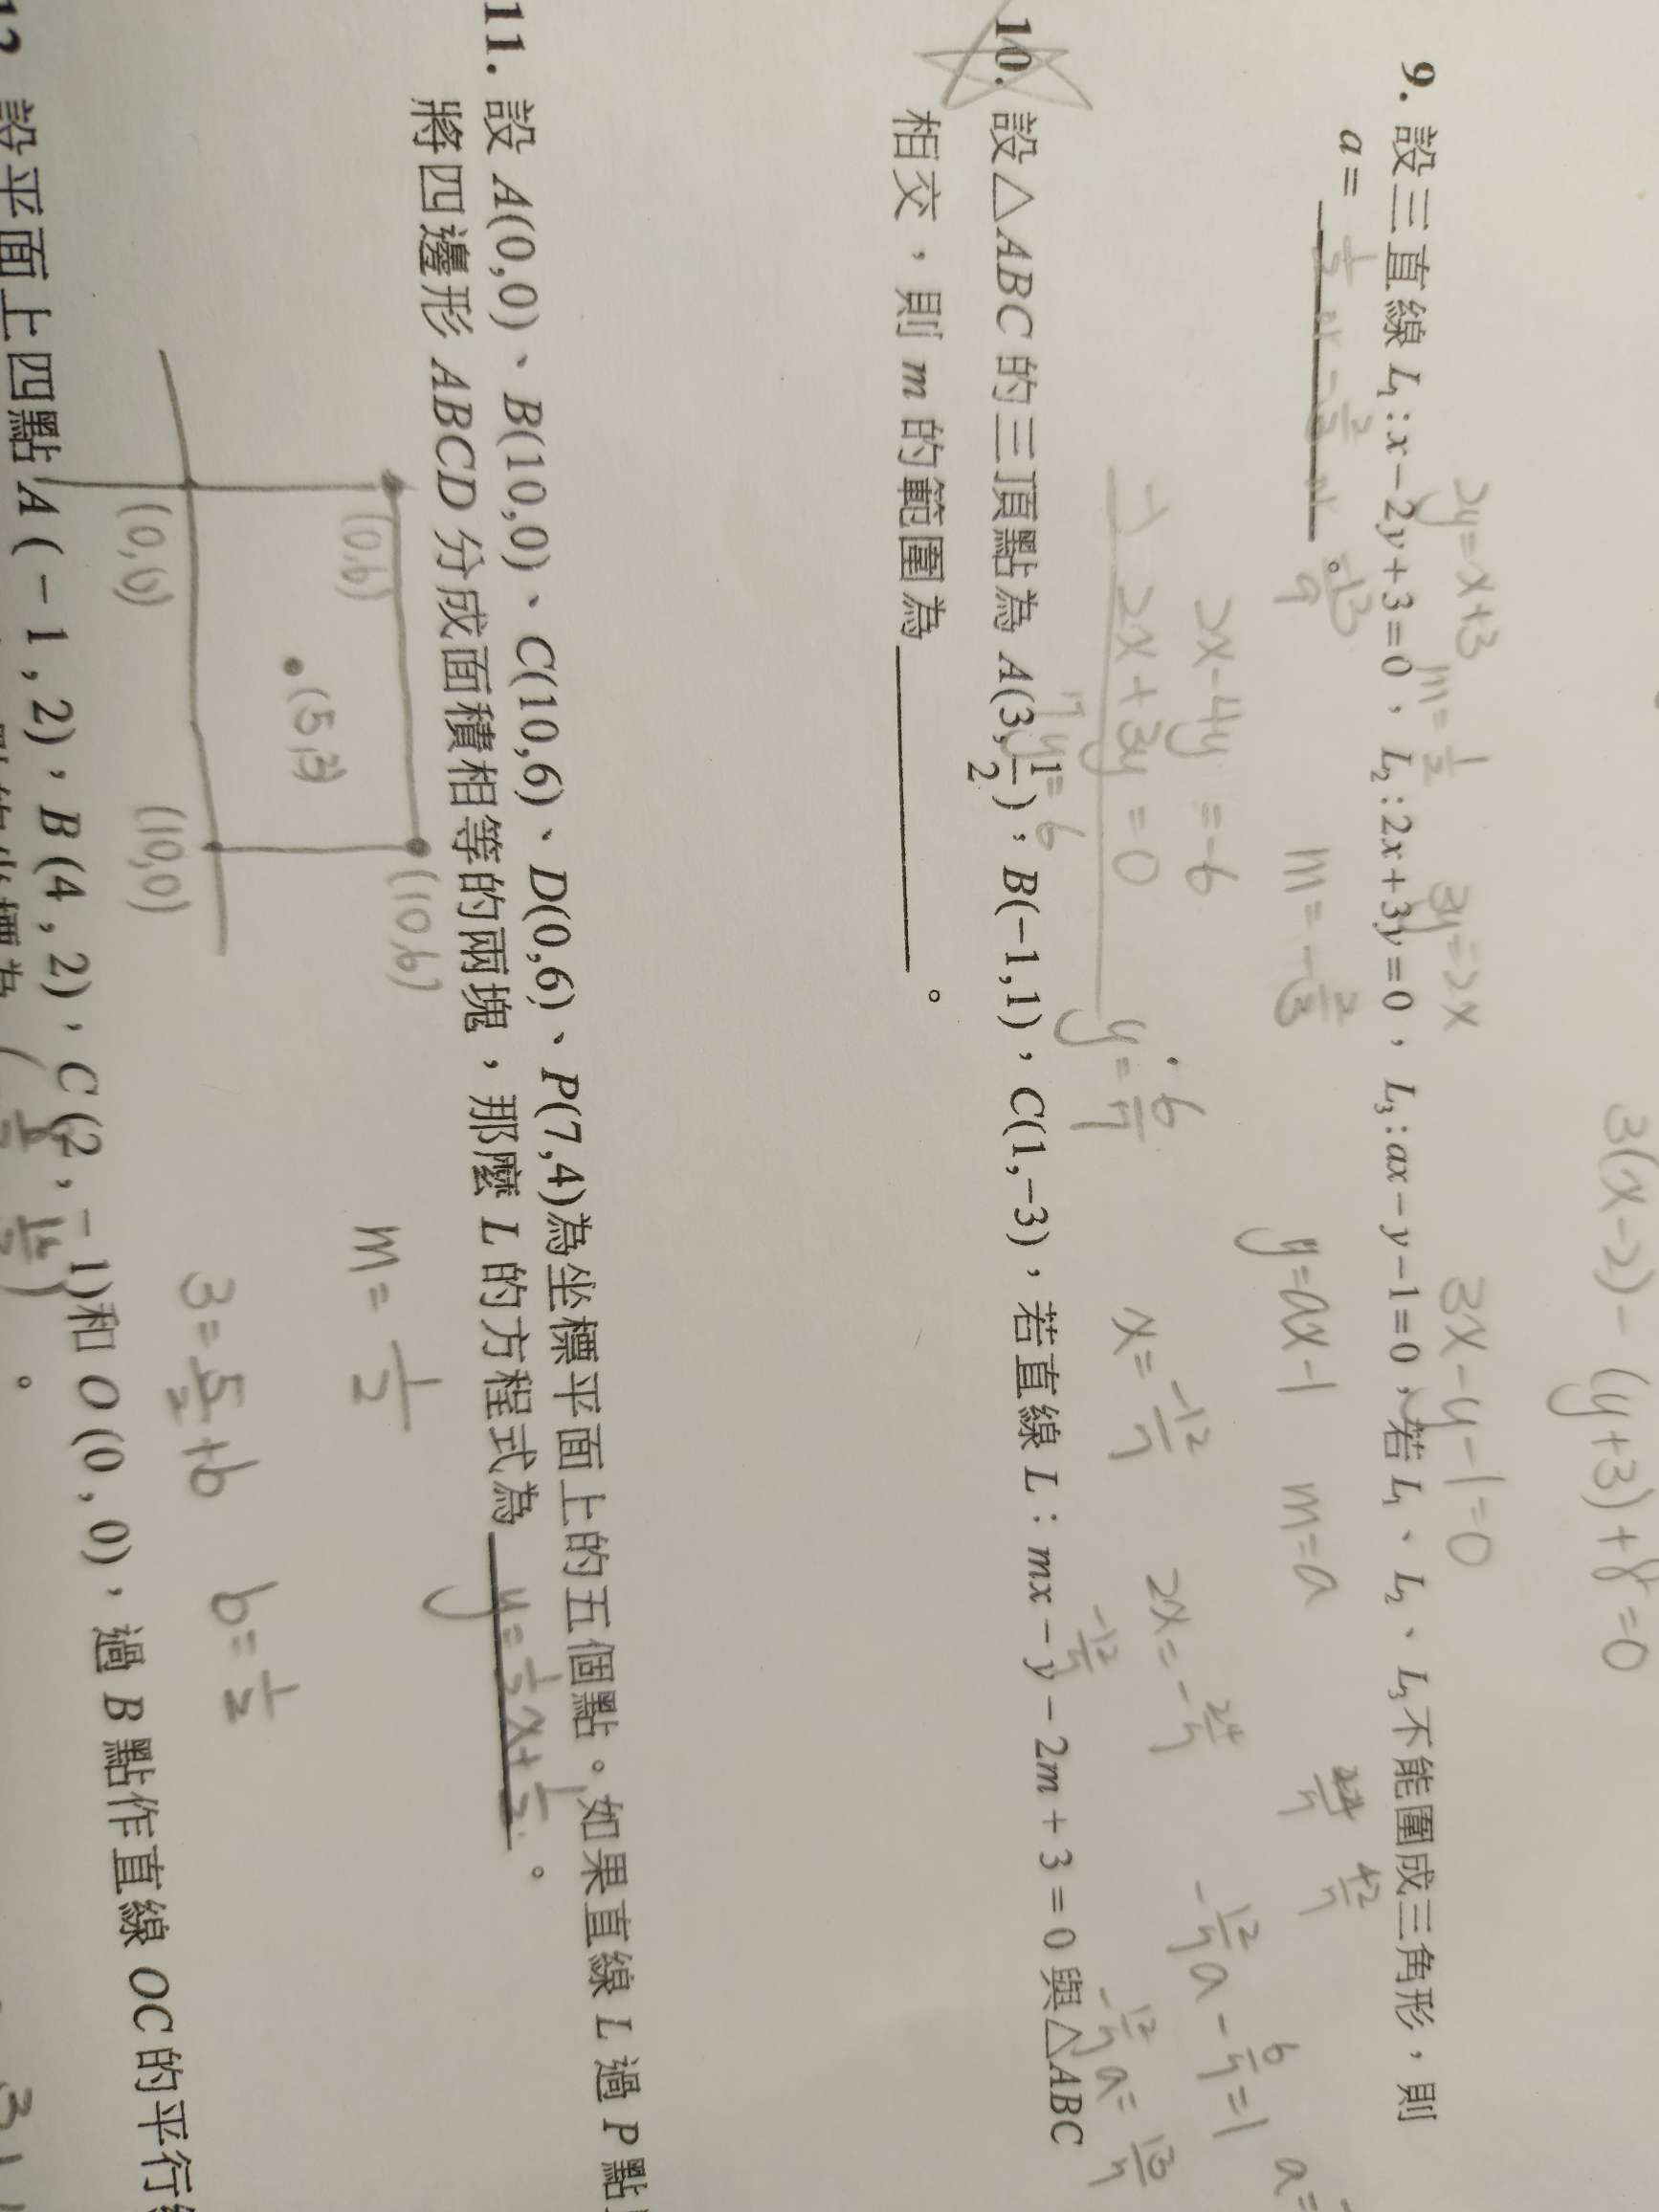 3(x-2)-(y+3)+8=0
2y=x+3 m=1/2 3y=-2x 3x-y-1=0
9. 設三直線 L₁:x-2y+3=0，L₂:2x+3y=0，L₃:ax-y-1=0，若 L₁、L₂、L₃不能圍成三角形，則
a= 1/2 或 -2/3 或 -13/12 。
m=-2/3 y=ax-1 m=a
2x-4y=-6
-) 2x+3y=0
7y=6
y=6/7 x=-12/7 2x=-24/7
-12/7 a-6/7=1
-12/7 a=13/7
10. 設△ABC 的三頂點為 A(3,1/2)，B(-1,1)，C(1,-3)，若直線 L：mx-y-2m+3=0 與△ABC
相交，則 m 的範圍為 。
11. 設 A(0,0)、B(10,0)、C(10,6)、D(0,6)、P(7,4)為坐標平面上的五個點。如果直線 L 過 P 點
將四邊形 ABCD 分成面積相等的兩塊，那麼 L 的方程式為 y=1/2x+1/2 。
(0,6) (10,6)
(5,3)
(0,0) (10,0)
m=1/2
3=5/2+b b=1/2
12. 設平面上四點 A(-1,2)，B(4,2)，C(2,-1)和 O(0,0)，過 B 點作直線 OC 的平行